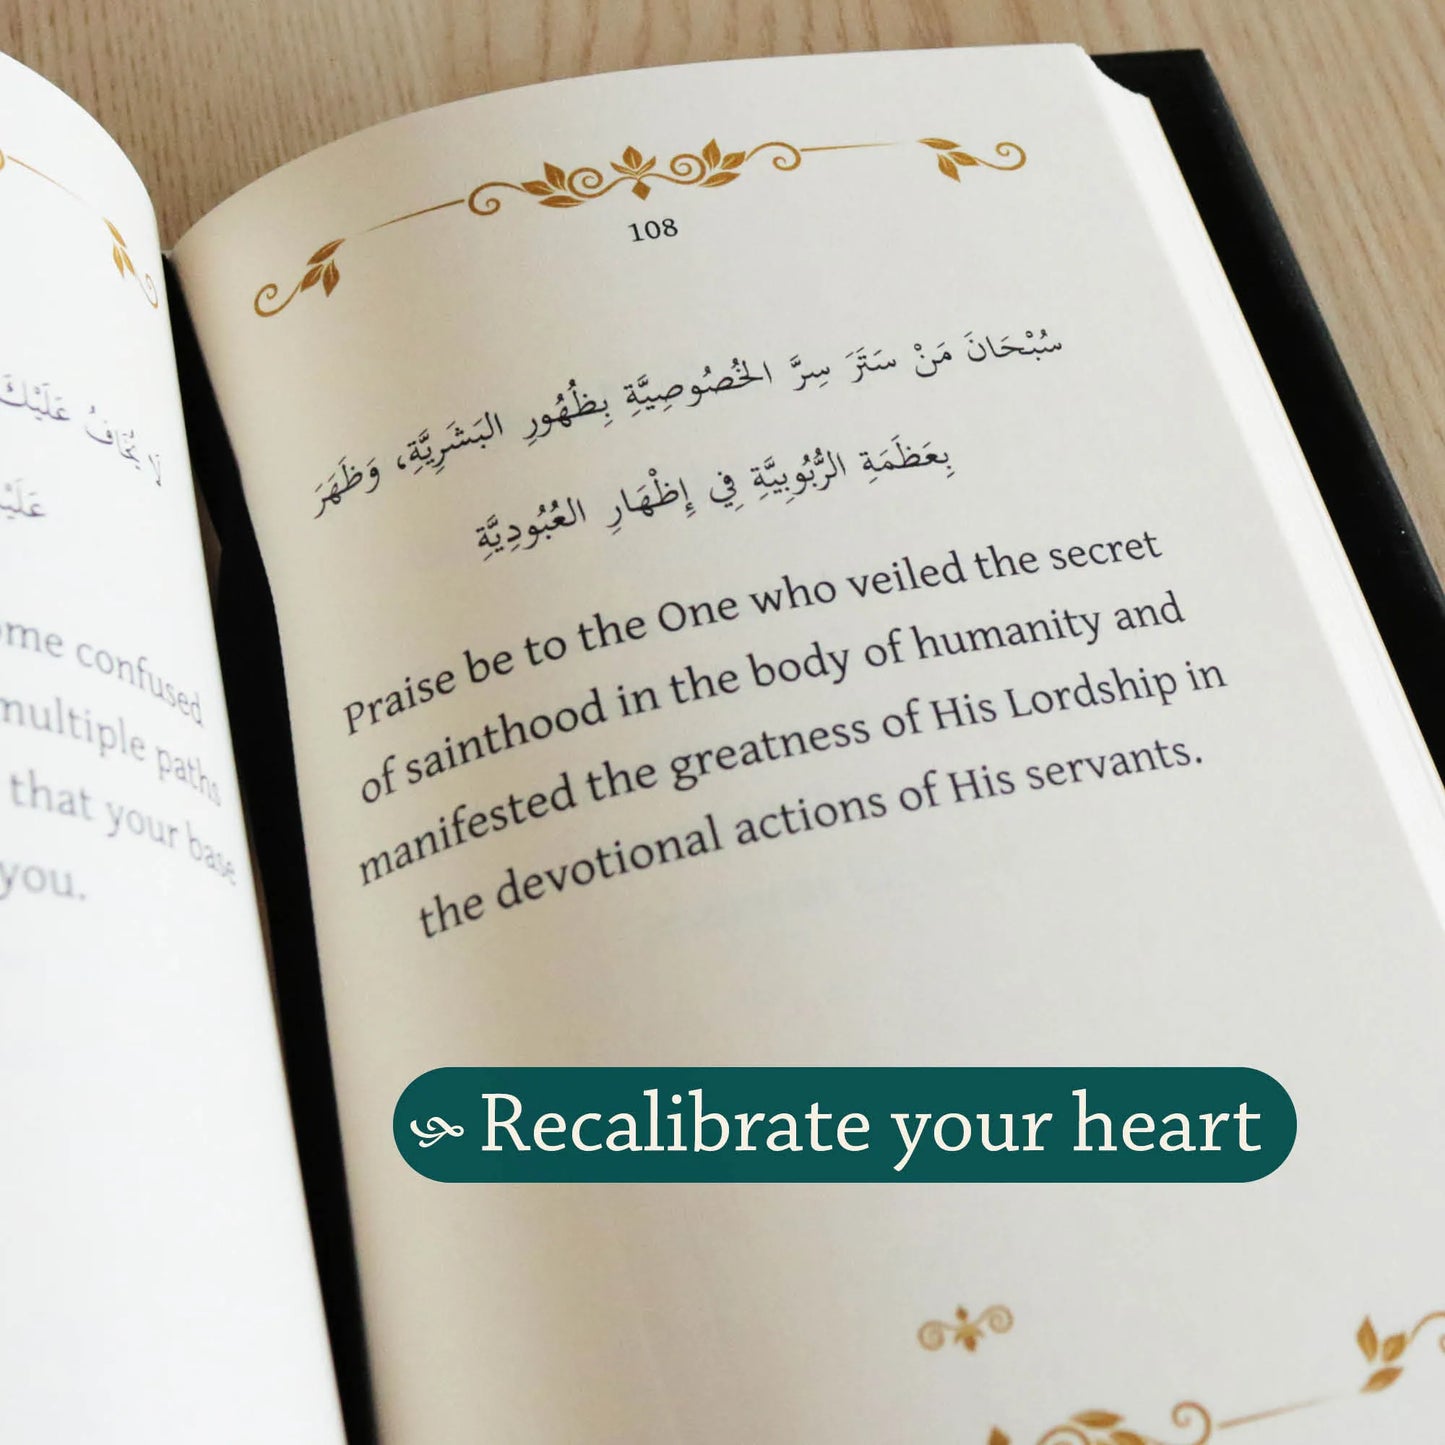 لَا يُخَافُ عَلَيْكَ
ome confused
multiple paths
that your base
you.
108
سُبْحَانَ مَنْ سَتَرَ سِرَّ الخُصُوصِيَّةِ بِظُهُورِ البَشَرِيَّةِ، وَظَهَرَ
بِعَظَمَةِ الرُّبُوبِيَّةِ فِي إِظْهَارِ العُبُودِيَّةِ
Praise be to the One who veiled the secret
of sainthood in the body of humanity and
manifested the greatness of His Lordship in
the devotional actions of His servants.
Recalibrate your heart